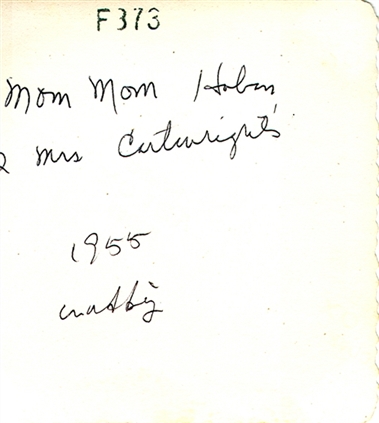 F373
Mom Mom Hoban
Mrs Cartwright's
1955